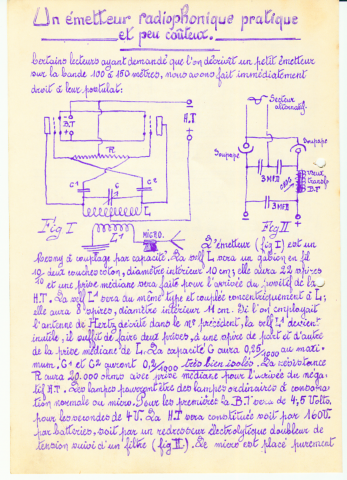 Un émetteur radiophonique pratique
et peu couteux.
Certains lecteurs ayant demandé que l'on décrivit un petit émetteur
sur la bande 100 à 150 mètres, nous avons fait immédiatement
droit à leur postulat:
B.T
H.T
R
C1
C
C2
L
L1
MICRO.
Fig I
Secteur
alternatif.
Soupape
Soupape
3 MFD
3 MFD
B.T
Fig II
L'émetteur (fig I) est un
Mesny à couplage par capacité. La self L sera un gabion en fil
deux couches coton, diamètre intérieur 10 cm; elle aura 22 spires
et une prise médiane sera faite pour l'arrivée du positif de la
H.T. La self L1 sera du même type et couplée concentriquement à L;
elle aura 8 spires, diamètre intérieur 11 cm. Si l'on employait
l'antenne de Hertz décrite dans le nº précédent, la self L1 devient
inutile, il suffit de faire deux prises, à une spire de part et d'autre
de la prise médiane de L. La capacité C aura 0,25/1000 au maxi-
mum, C1 et C2 auront 0,2/1000 très bien isolés. La résistance
R aura 20.000 ohms avec prise médiane pour l'arrivée du néga-
tif H.T. Les lampes pourront être des lampes ordinaires à consoma-
tion normale ou micro. Pour les premières la B.T sera de 4,5 Volts,
pour les secondes de 4 V. La H.T sera constituée soit par 160V.
par batteries, soit par un redresseur électrolytique doubleur de
tension suivi d'un filtre (fig II). Le micro est placé purement